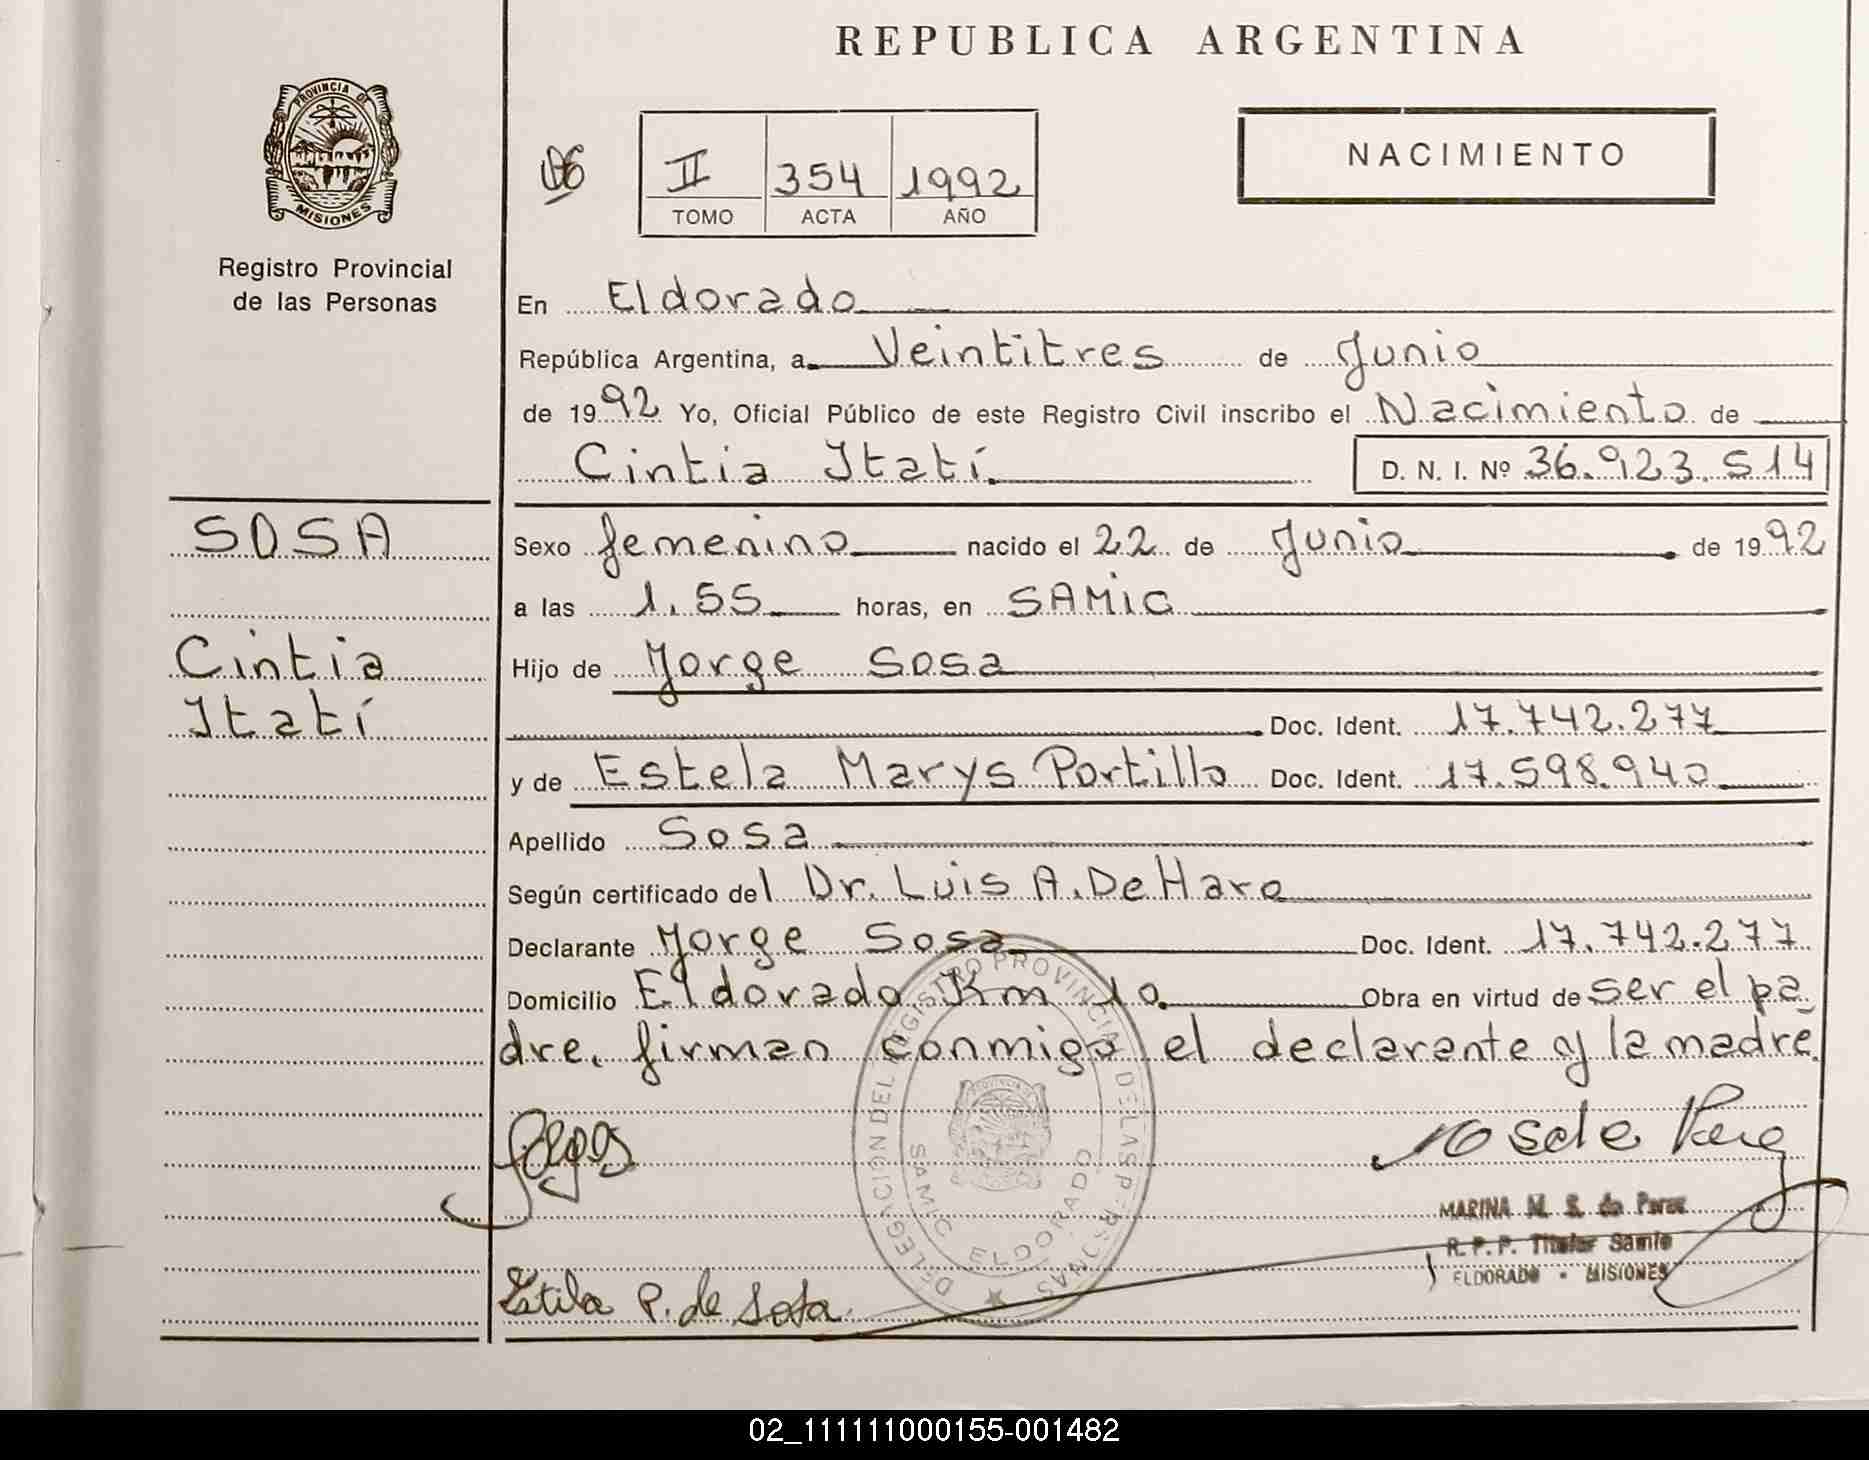 REPUBLICA ARGENTINA
PROVINCIA DE
MISIONES
Registro Provincial
de las Personas
II 354 1992
TOMO ACTA AÑO
NACIMIENTO
En Eldorado
República Argentina, a Veintitres de Junio
de 1992 Yo, Oficial Público de este Registro Civil inscribo el Nacimiento de
Cintia Itatí. D. N. I. Nº 36.923.514
SOSA
Cintia
Itatí
Sexo femenino nacido el 22 de Junio de 1992
a las 1.55 horas, en SAMiC
Hijo de Jorge Sosa
Doc. Ident. 17.742.277
y de Estela Marys Portillo Doc. Ident. 17.598.940
Apellido Sosa
Según certificado del Dr. Luis A. De Haro
Declarante Jorge Sosa Doc. Ident. 17.742.277
Domicilio Eldorado Km 10. Obra en virtud de ser el pa
dre. firman conmigo el declarante y la madre.
DELEGACION DEL REGISTRO PROVINCIAL DE LAS PERSONAS
SAMIC ELDORADO
MARINA M. S. de Perez
R. P. P. Titular Samic
ELDORADO - MISIONES
Estela P. de Sosa
02_111111000155-001482